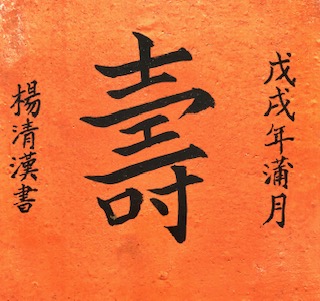 戊戌年蒲月
壽
楊清漢書